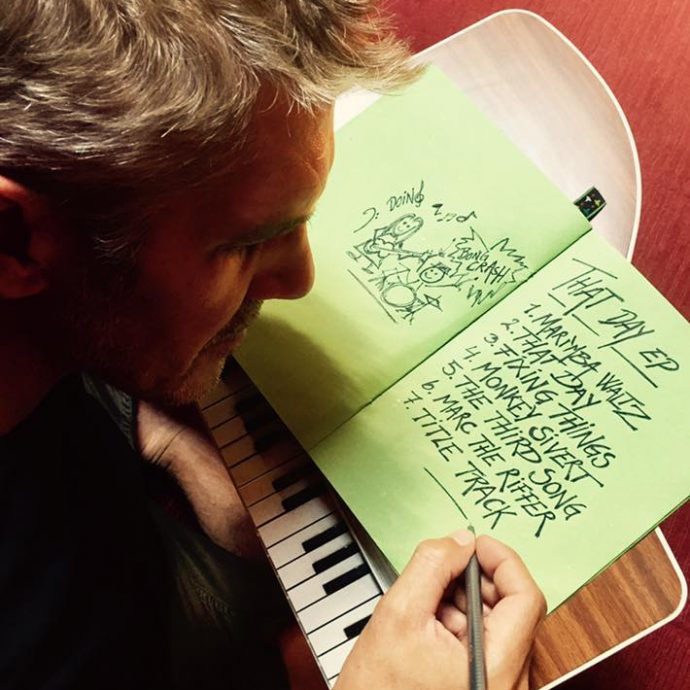 DOING
DONG
CRASH
THAT DAY EP
1. MARIMBA WALTZ
2. THAT DAY
3. FIXING THINGS
4. MONKEY SIVERT
5. THE THIRD SONG
6. MARC THE RIFFER
7. TITLE TRACK